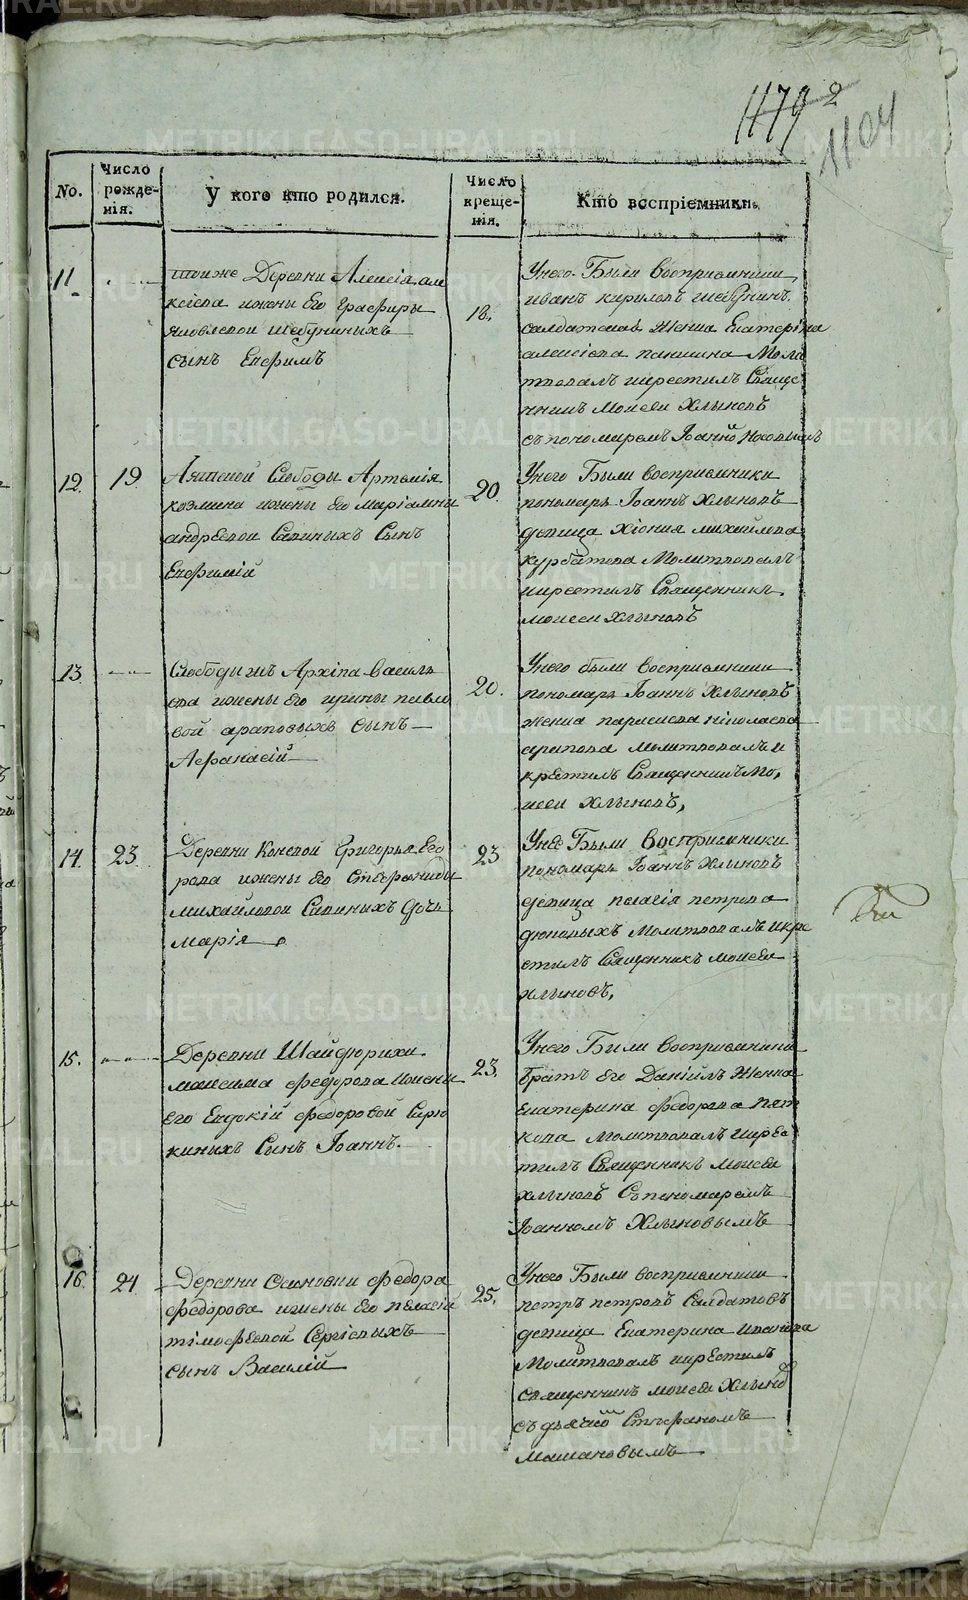 1179 2
1104
No.
Число рожденія.
У кого кто родился.
Число крещенія.
Кто воспріемники.
11.
тоиже Деревни Алексія але
ксіева ижены Его Графиры
яковлевой Шебуниныхъ
сынъ Ефимъ
18.
Унего Были Восприемники
иванъ кириловъ шебунинъ
салдатская Женка Екатеріна
алексіева паншина Моли
твовалъ икрестилъ Свяще
нникъ Моисеи Хлыновъ
съ пономаремъ
12.
19
Слободы Артемія
козмина ижены Его маріамны
андреевой Савиныхъ Сынъ
Евфимій
20.
Унего Были восприемники
пономарь Іоаннъ Хлыновъ
девица Хіония михайлова
курбатова Молитвовалъ
икрестилъ Священникъ
моисеи хлыновъ
13.
Слободы жъ Архипа василь
ева ижены Его ирины павло
вой араповыхъ Сынъ
Афанасій
20.
Унего были восприемники
пономарь Іоаннъ Хлыновъ
женка параскева ніколаева
арапова молитвовалъ и
крестилъ Священникъ Мо,
исеи Хлыновъ,
14.
23.
Деревни Коневой Григорья Его
рова ижены Его Стефаниды
михайловой Савиныхъ Дочь
марія
23
Унее Были Восприемники
пономарь Іоаннъ Хлыновъ
девица пелагія петрова
дюповыхъ Молитвовалъ икре
стилъ Священникъ моисеи
хлыновъ,
15.
Деревни Шайдюрихи
максима федорова ижены
Его Евдокій федоровой Сирю
киныхъ Сынъ Іоаннъ.
23.
Унего Были Восприемники
братъ Его Даніилъ Женка
Екатерина федорова пят
кова Молитвовалъ икрес
тилъ Священникъ моисеи
хлыновъ Съ пономаремъ
Іоанномъ Хлыновымъ
16.
24
Деревни Осиновки федора
федорова ижены Его пелагіи
тімофеевой Сергіевыхъ
сынъ Василій
25.
Унего Были восприемники
петръ петровъ Салдатовъ
девица Екатерина иванова
Молитвовалъ икрестилъ
священникъ моисеи Хлынов
съ дьячко Стефаномъ